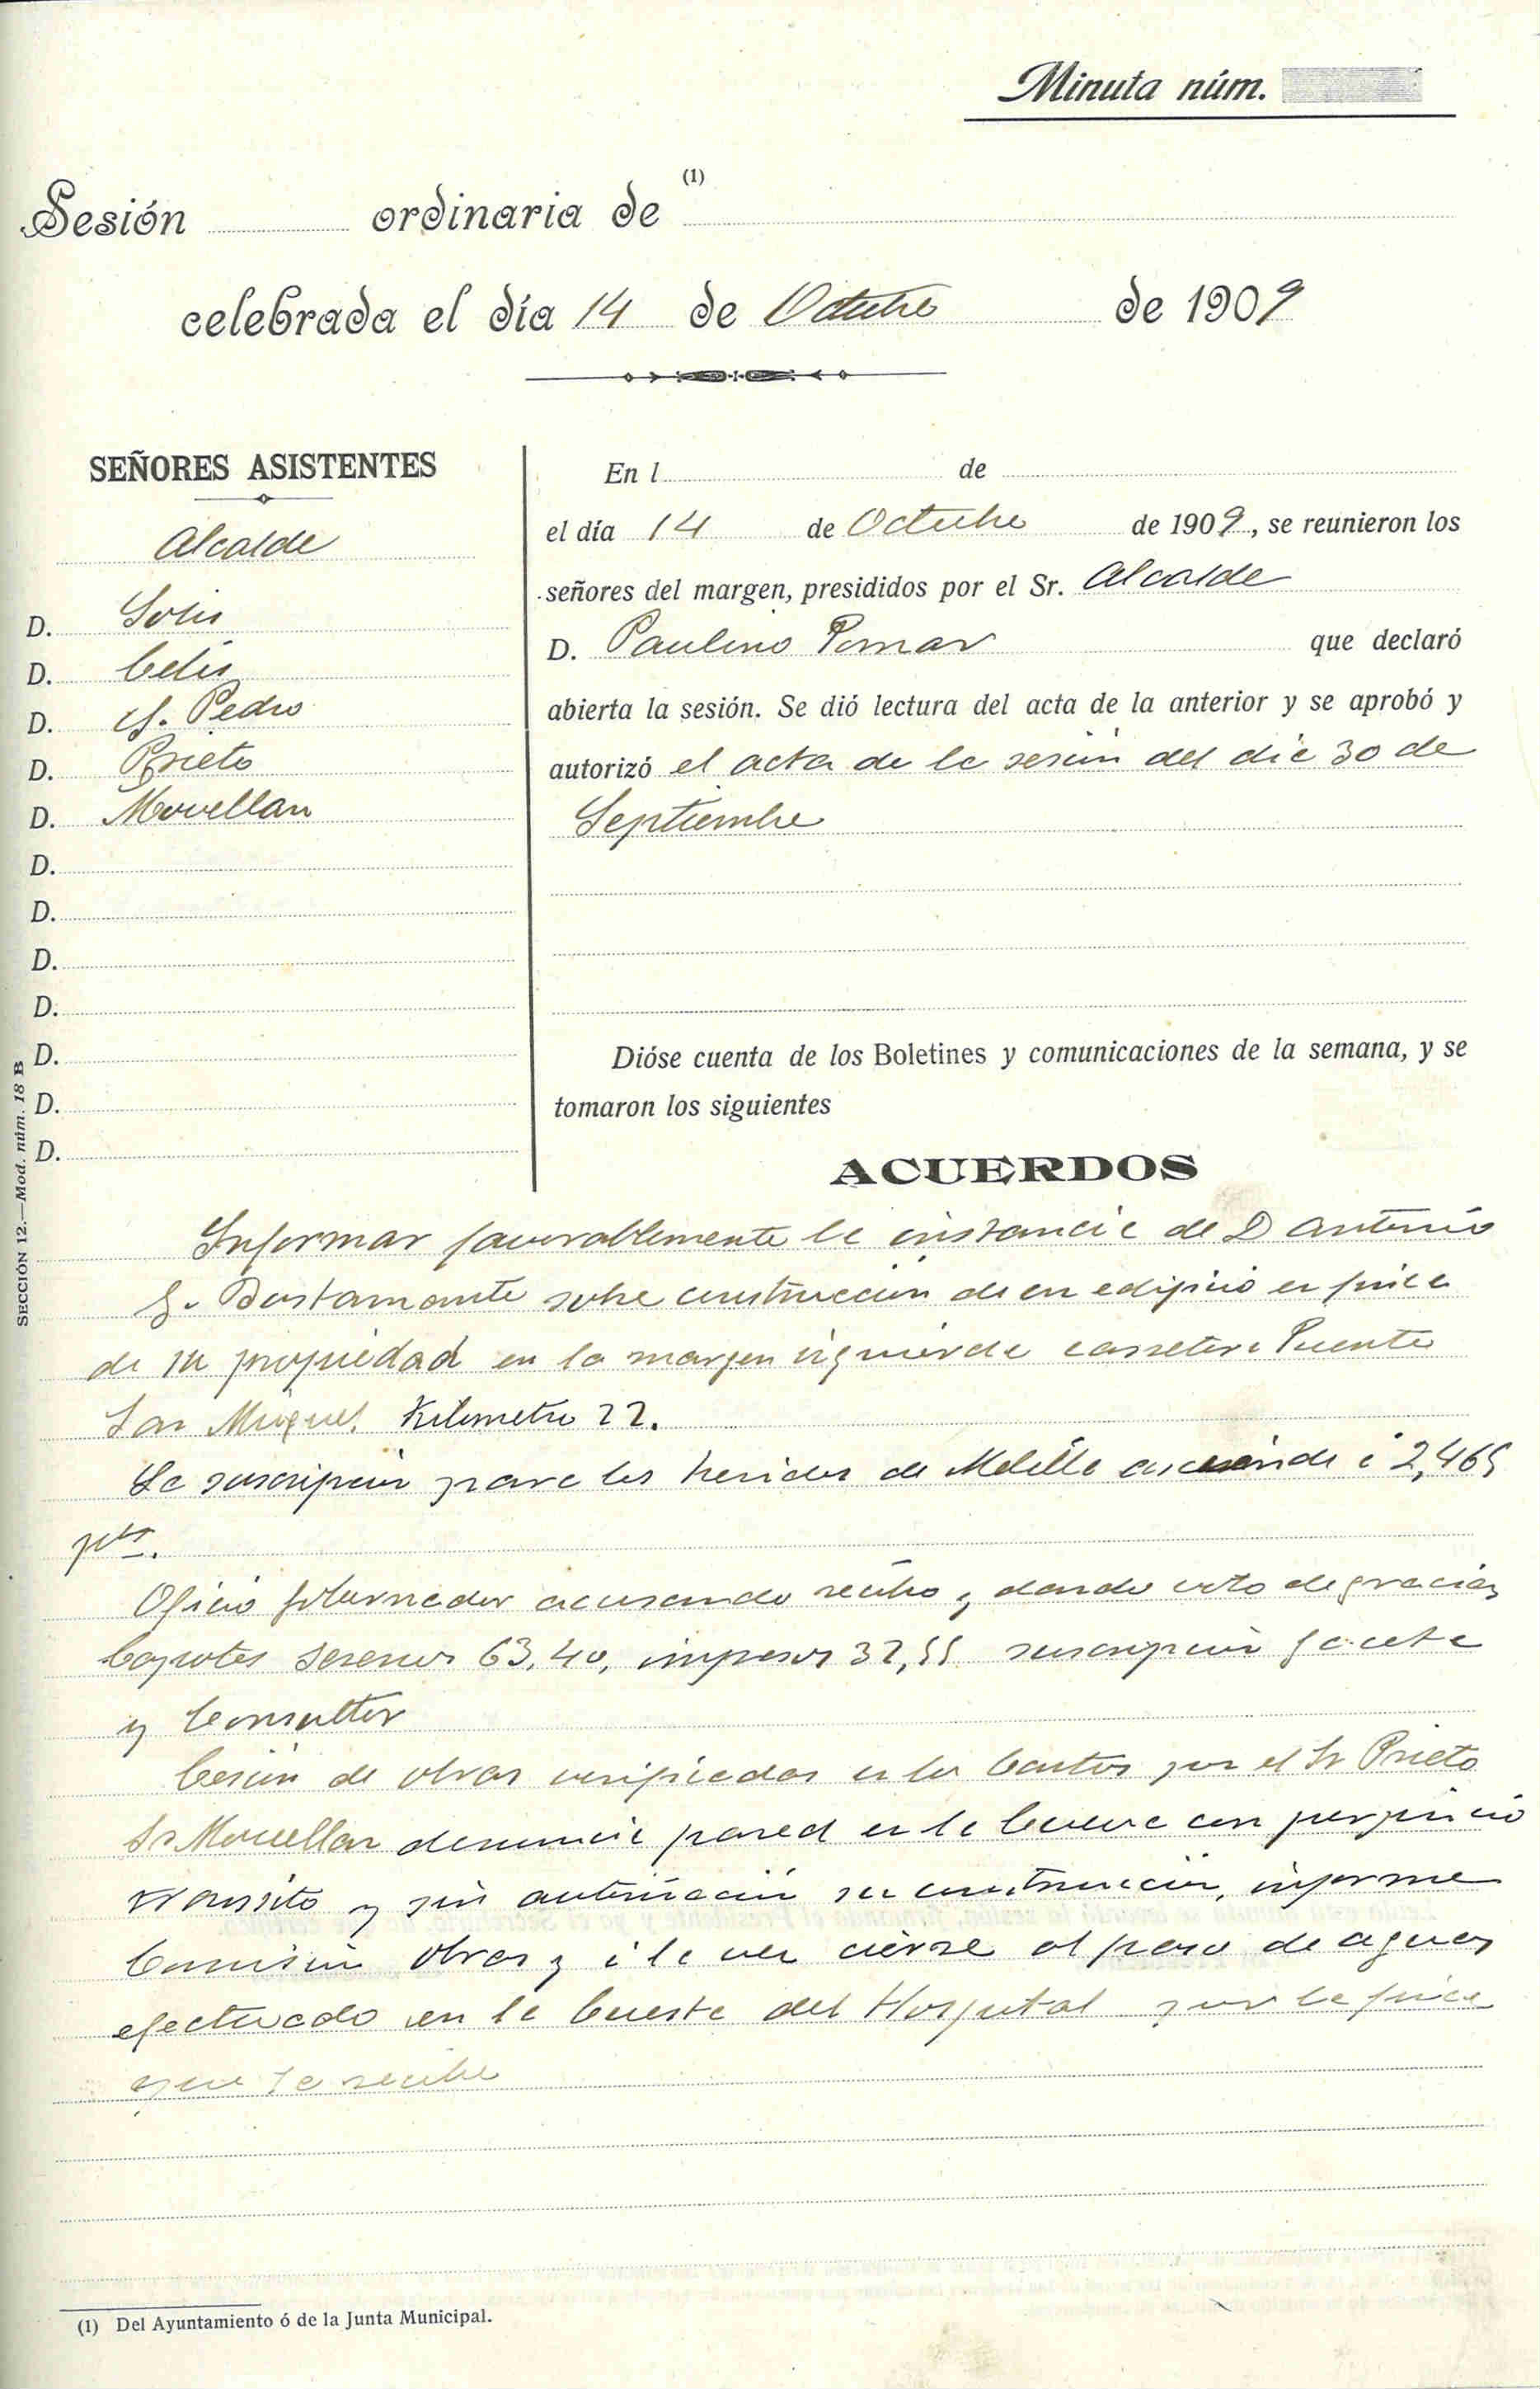 Minuta núm.
Sesión ordinaria de (1)
celebrada el día 14 de Octubre de 1909
SEÑORES ASISTENTES
Alcalde
D. Solis
D. Celis
D. G. Pedro
D. Prieto
D. Movellan
D.
D.
D.
D.
D.
D.
D.
SECCIÓN 12.—Mod. núm. 18 B
En l de
el día 14 de Octubre de 1909, se reunieron los
señores del margen, presididos por el Sr. Alcalde
D. Paulino Pomar que declaró
abierta la sesión. Se dió lectura del acta de la anterior y se aprobó y
autorizó el acta de la sesión del dia 30 de
Septiembre
Dióse cuenta de los Boletines y comunicaciones de la semana, y se
tomaron los siguientes
ACUERDOS
Informar favorablemente la instancia de D Antonio
G. Bustamante sobre construcción de un edificio en finca
de su propiedad en la margen izquierda carretera Puente
San Miguel Kilometro 22.
La suscripcion para los heridos de Melilla asciende á 2,465
pts.
Oficio Gobernador acusando recibo y dando voto de gracias
Capotes serenos 63,40, impresos 32,55 suscripcion Gaceta
y Consultor
Cesión de obras verificadas en los Cantos por el Sr Prieto
Sr Movellan denuncia pared en la Cueva con perjuicio
transito y sin autorización su construcción, informe
Comision Obras y á la vez cierre al paso de aguas
efectuado en la Cuesta del Hospital por la finca
que la recibe
(1) Del Ayuntamiento ó de la Junta Municipal.